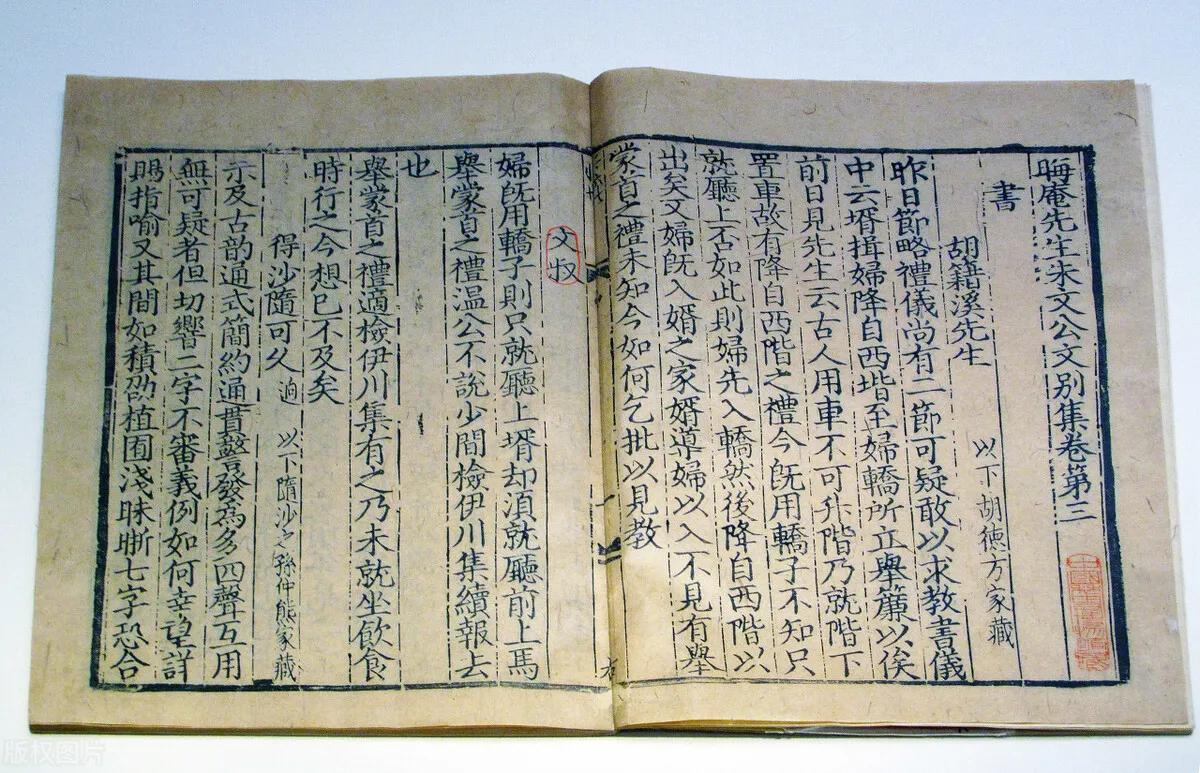 晦庵先生朱文公文别集卷第三
書
胡籍溪先生 以下胡德方家藏
昨日節略禮儀尚有二節可疑敢以求教書儀
中云壻揖婦降自西堦至婦轎所立舉簾以俟
前日見先生云古人用車不可升階乃就階下
置車故有降自西階之禮今旣用轎子不知只
就廳上否如此則婦先入轎然後降自西階以
出矣又婦旣入婿之家婿導婦以入不見有舉
蒙首之禮未知今如何乞批以見教
婦旣用轎子則只就廳上壻却湏就廳前上馬
舉蒙首之禮温公不說少間檢伊川集續報去
也
舉蒙首之禮適檢伊川集有之乃未就坐飲食
時行之今想已不及矣
得沙隨可久 逈 以下隋沙之孫仲熊家藏
示及古韵通式簡約通貫警發為多四聲互用
無可疑者但切響二字不審義例如何幸望詳
賜指喻又其間如積劭植囿淺昧晣七字恐合
版权图片